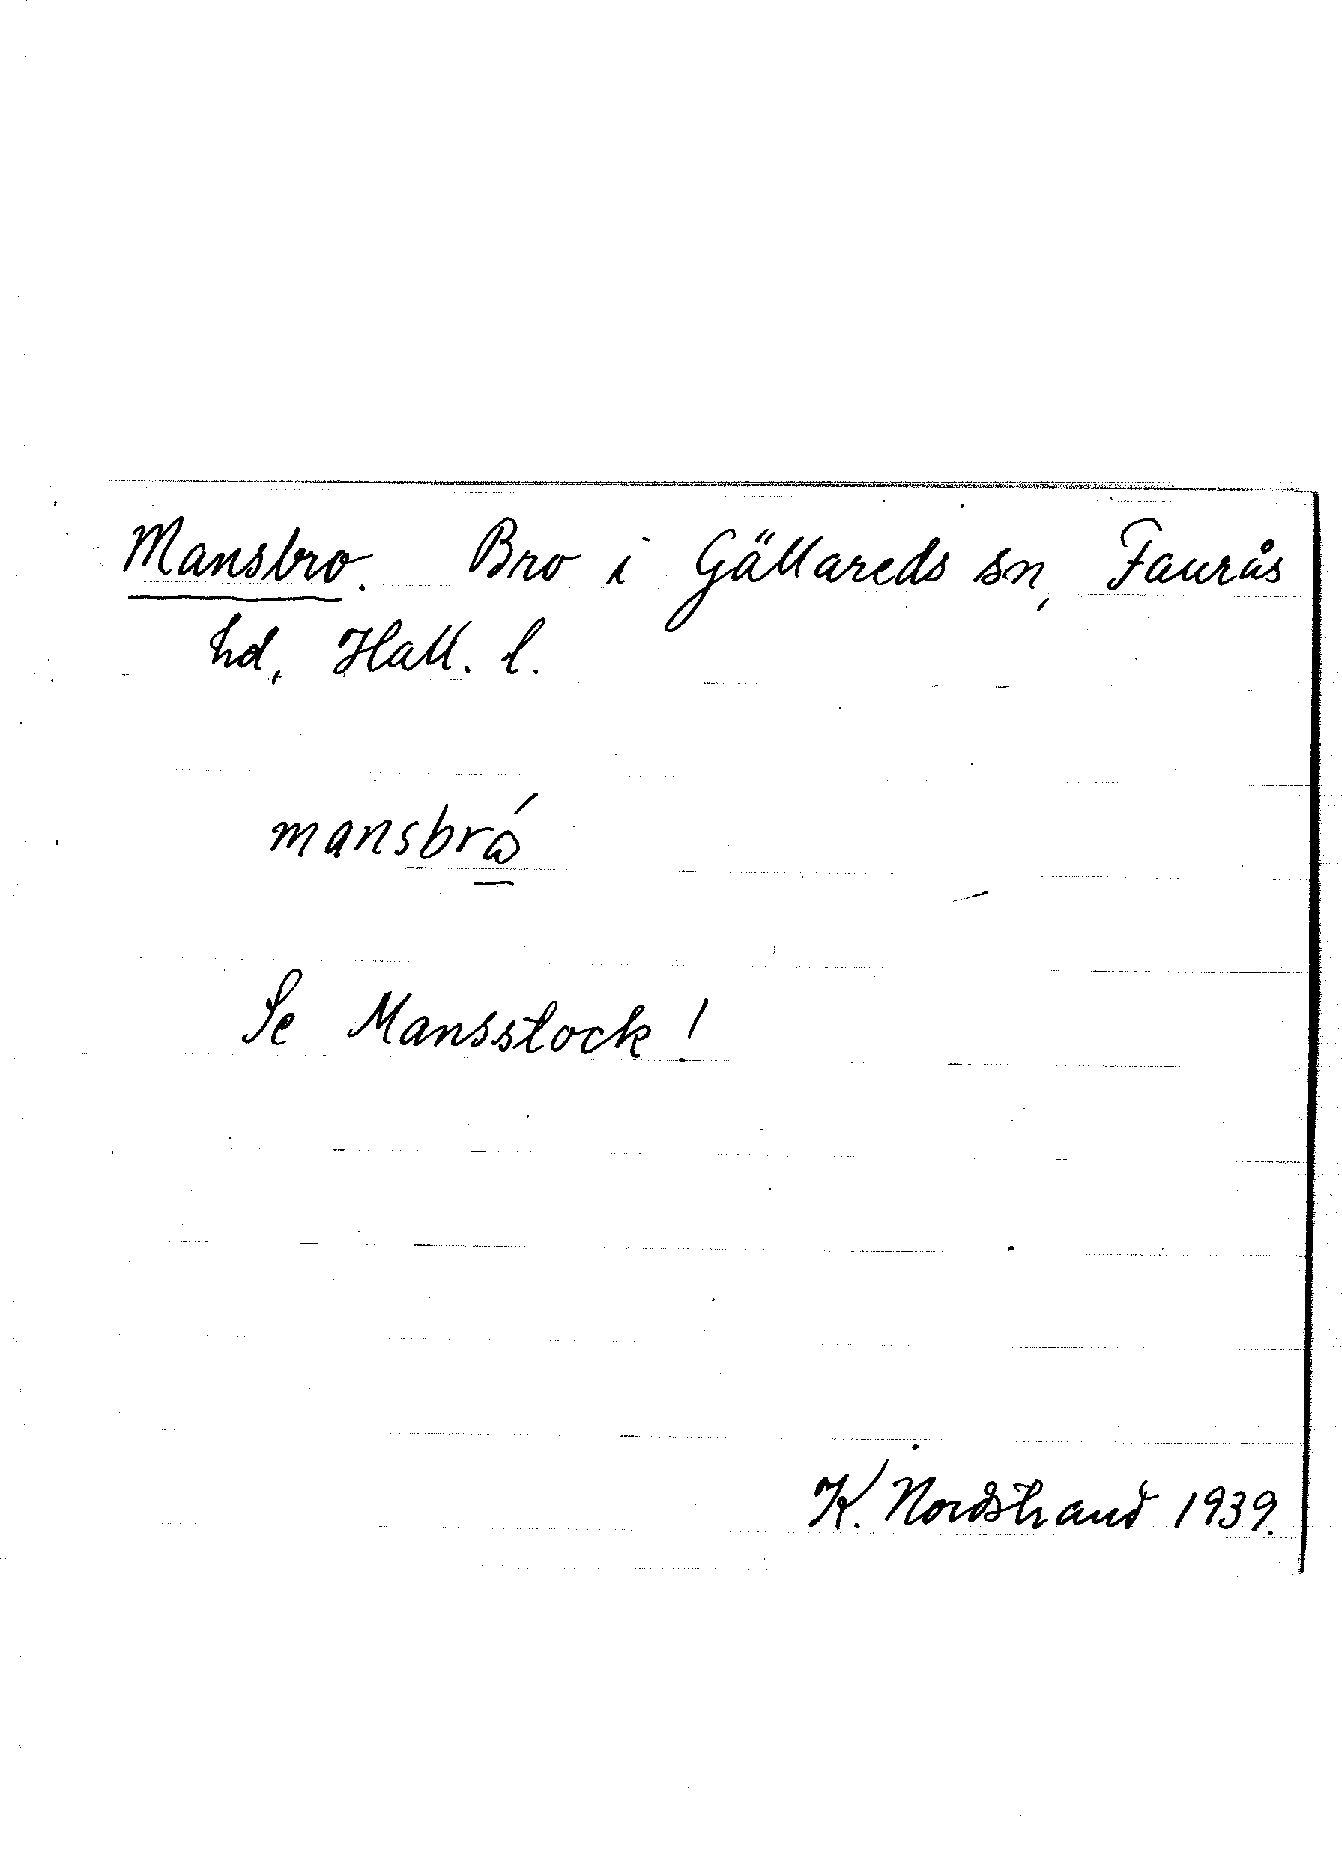 Mansbro. Bro i Gällareds sn, Faurås
hd, Hall. l.
mansbrώ
Se Mansstock!
K. Nordstrand 1939.